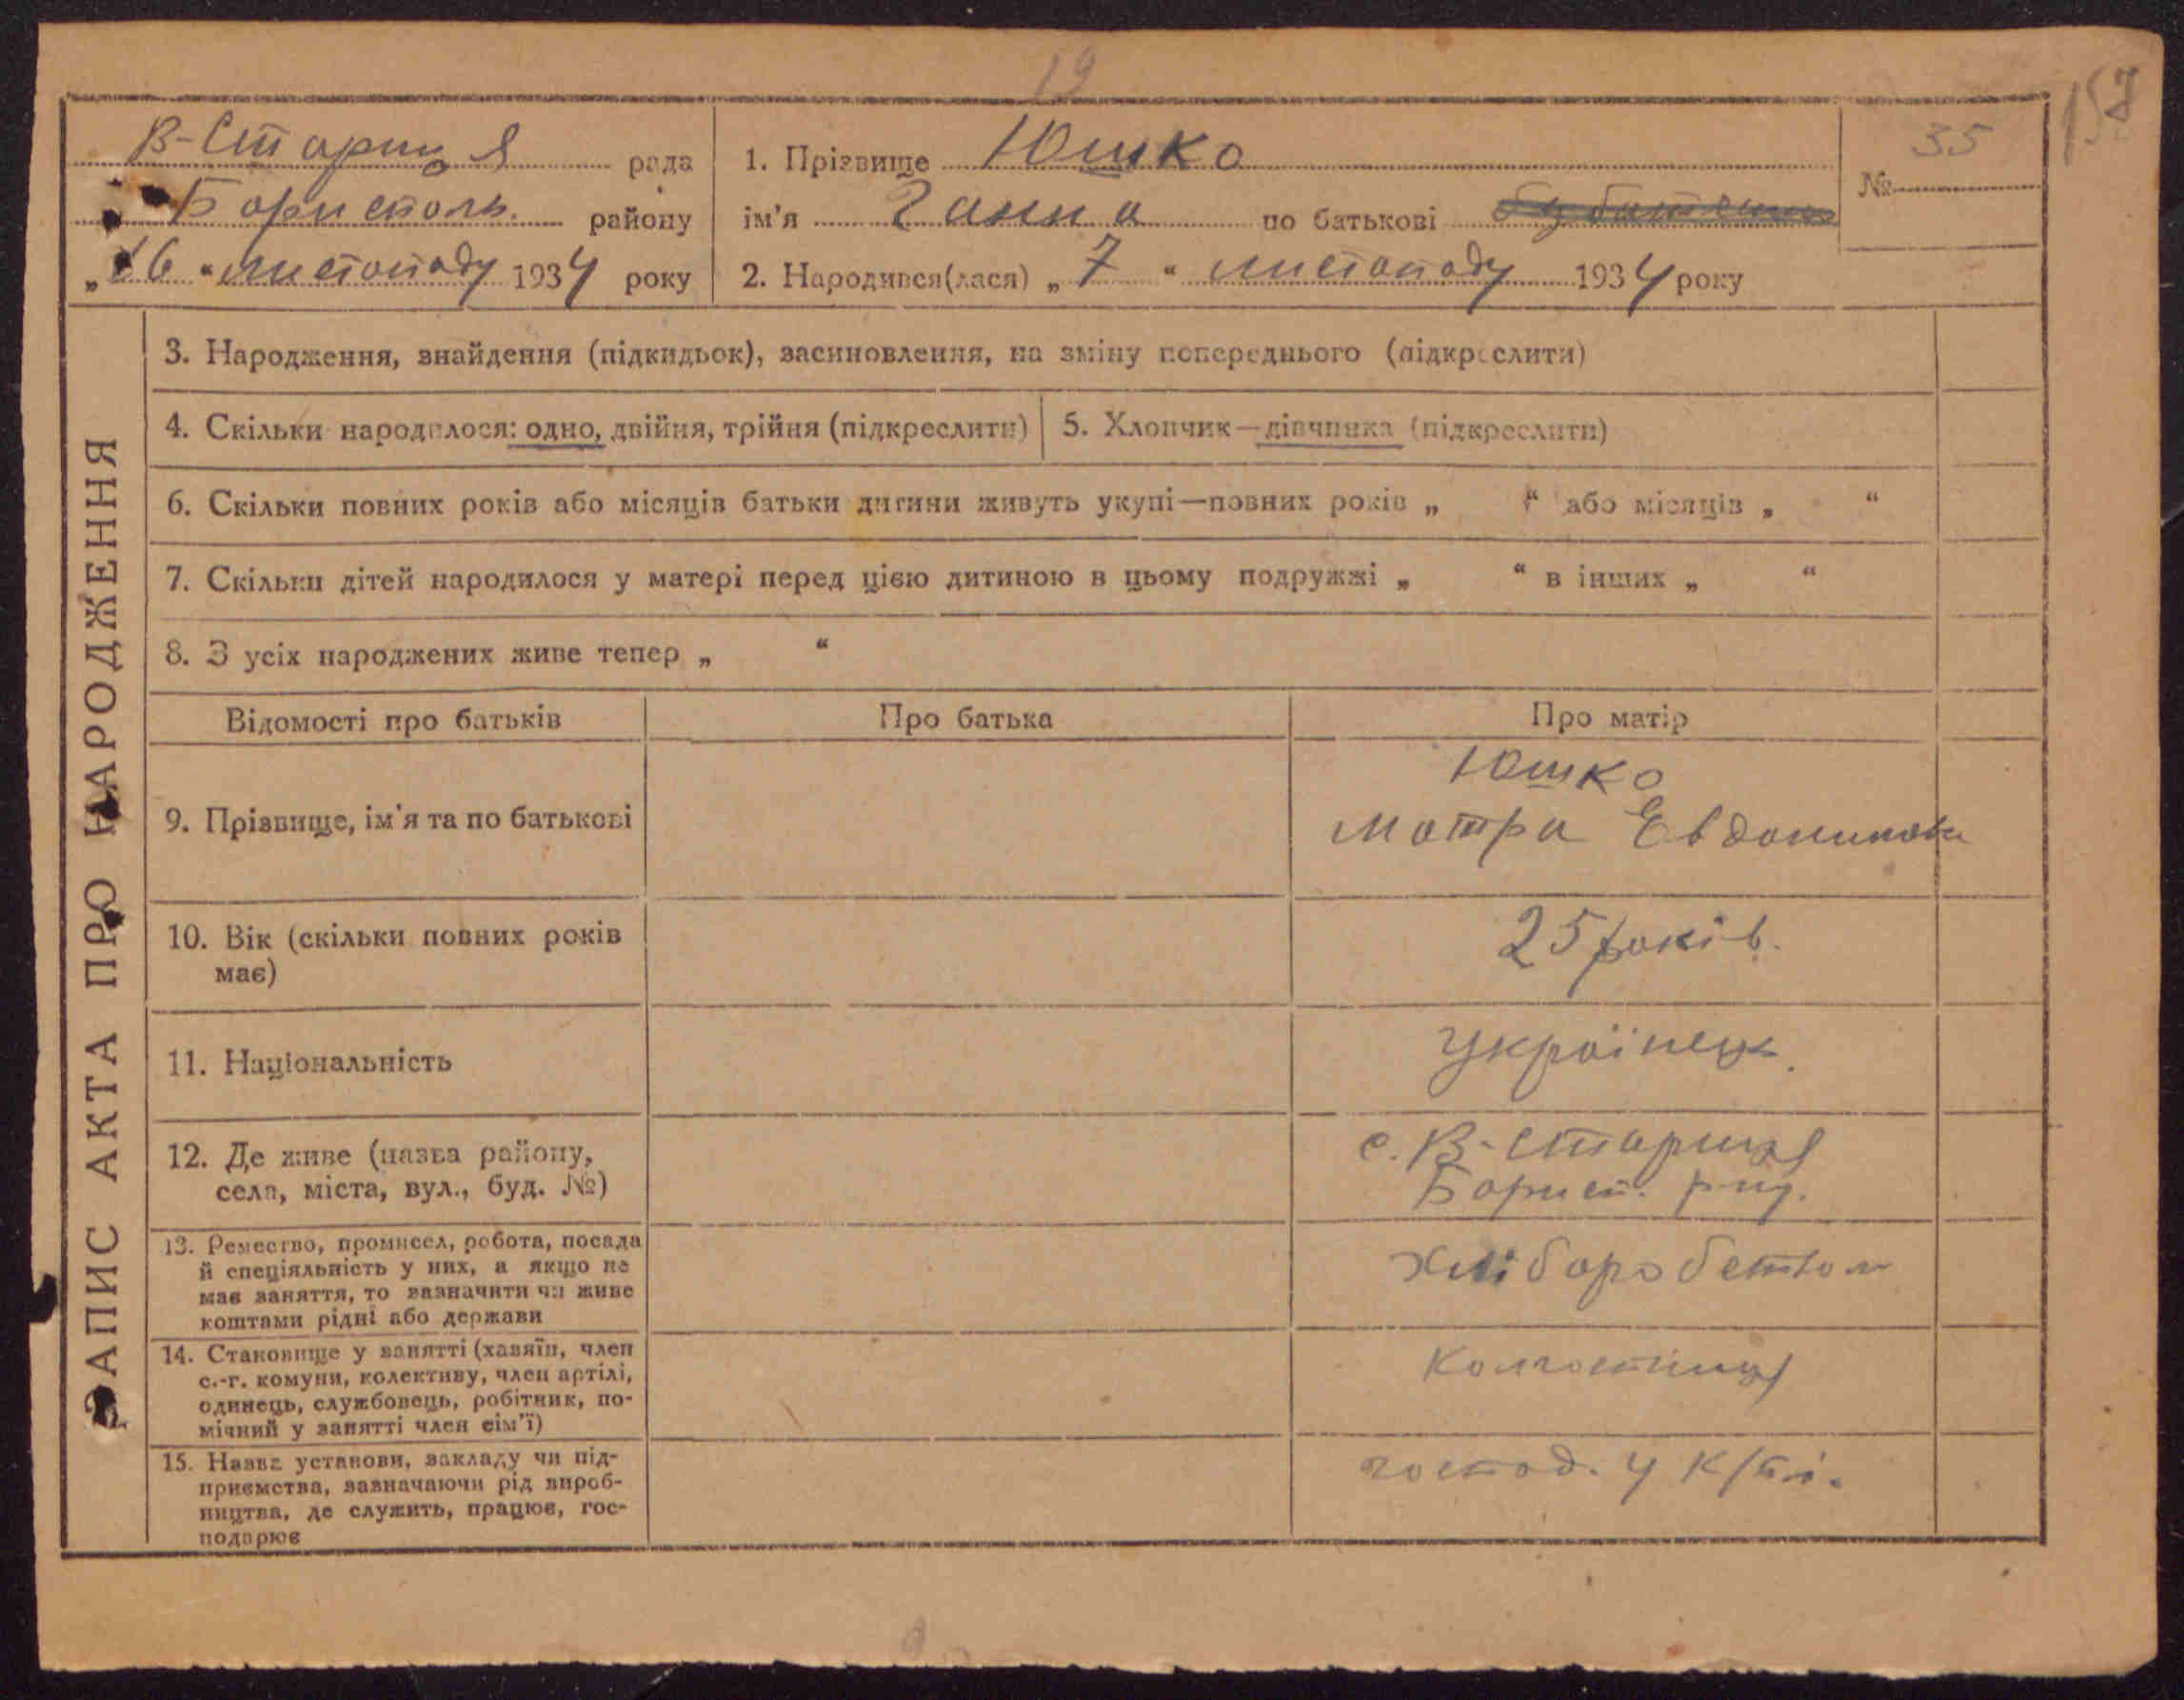 19
157
В-Стариця рада
Бориспольс. району
„16“ листопаду 1934 року
1. Прізвище Юшко
ім'я Ганна по батькові
2. Народився(лася) „7“ листопаду 1934 року
35
№
ЗАПИС АКТА ПРО НАРОДЖЕННЯ
3. Народження, знайдення (підкидьок), засиновлення, на зміну попереднього (підкреслити)
4. Скільки народилося: одно, двійня, трійня (підкреслити)
5. Хлопчик—дівчинка (підкреслити)
6. Скільки повних років або місяців батьки дитини живуть укупі—повних років „ “ або місяців „ “
7. Скільки дітей народилося у матері перед цією дитиною в цьому подружжі „ “ в інших „ “
8. З усіх народжених живе тепер „ “
Відомості про батьків
Про батька
Про матір
9. Прізвище, ім'я та по батькові
Юшко
Мотря
10. Вік (скільки повних років
має)
25 років.
11. Національність
Українець.
12. Де живе (назва району,
села, міста, вул., буд. №)
с. В-Стариця
Борисп. р-ну.
13. Ремество, промисел, робота, посада
й спеціяльність у них, а якщо не
має заняття, то зазначити чи живе
коштами рідні або держави
Хліборобство
14. Становище у занятті (хазяїн, член
с.-г. комуни, колективу, член артілі,
одинець, службовець, робітник, по-
мічний у занятті член сім'ї)
Колгоспниця
15. Назва установи, закладу чи під-
приємства, зазначаючи рід вироб-
ництва, де служить, працює, гос-
подарює
господ. у